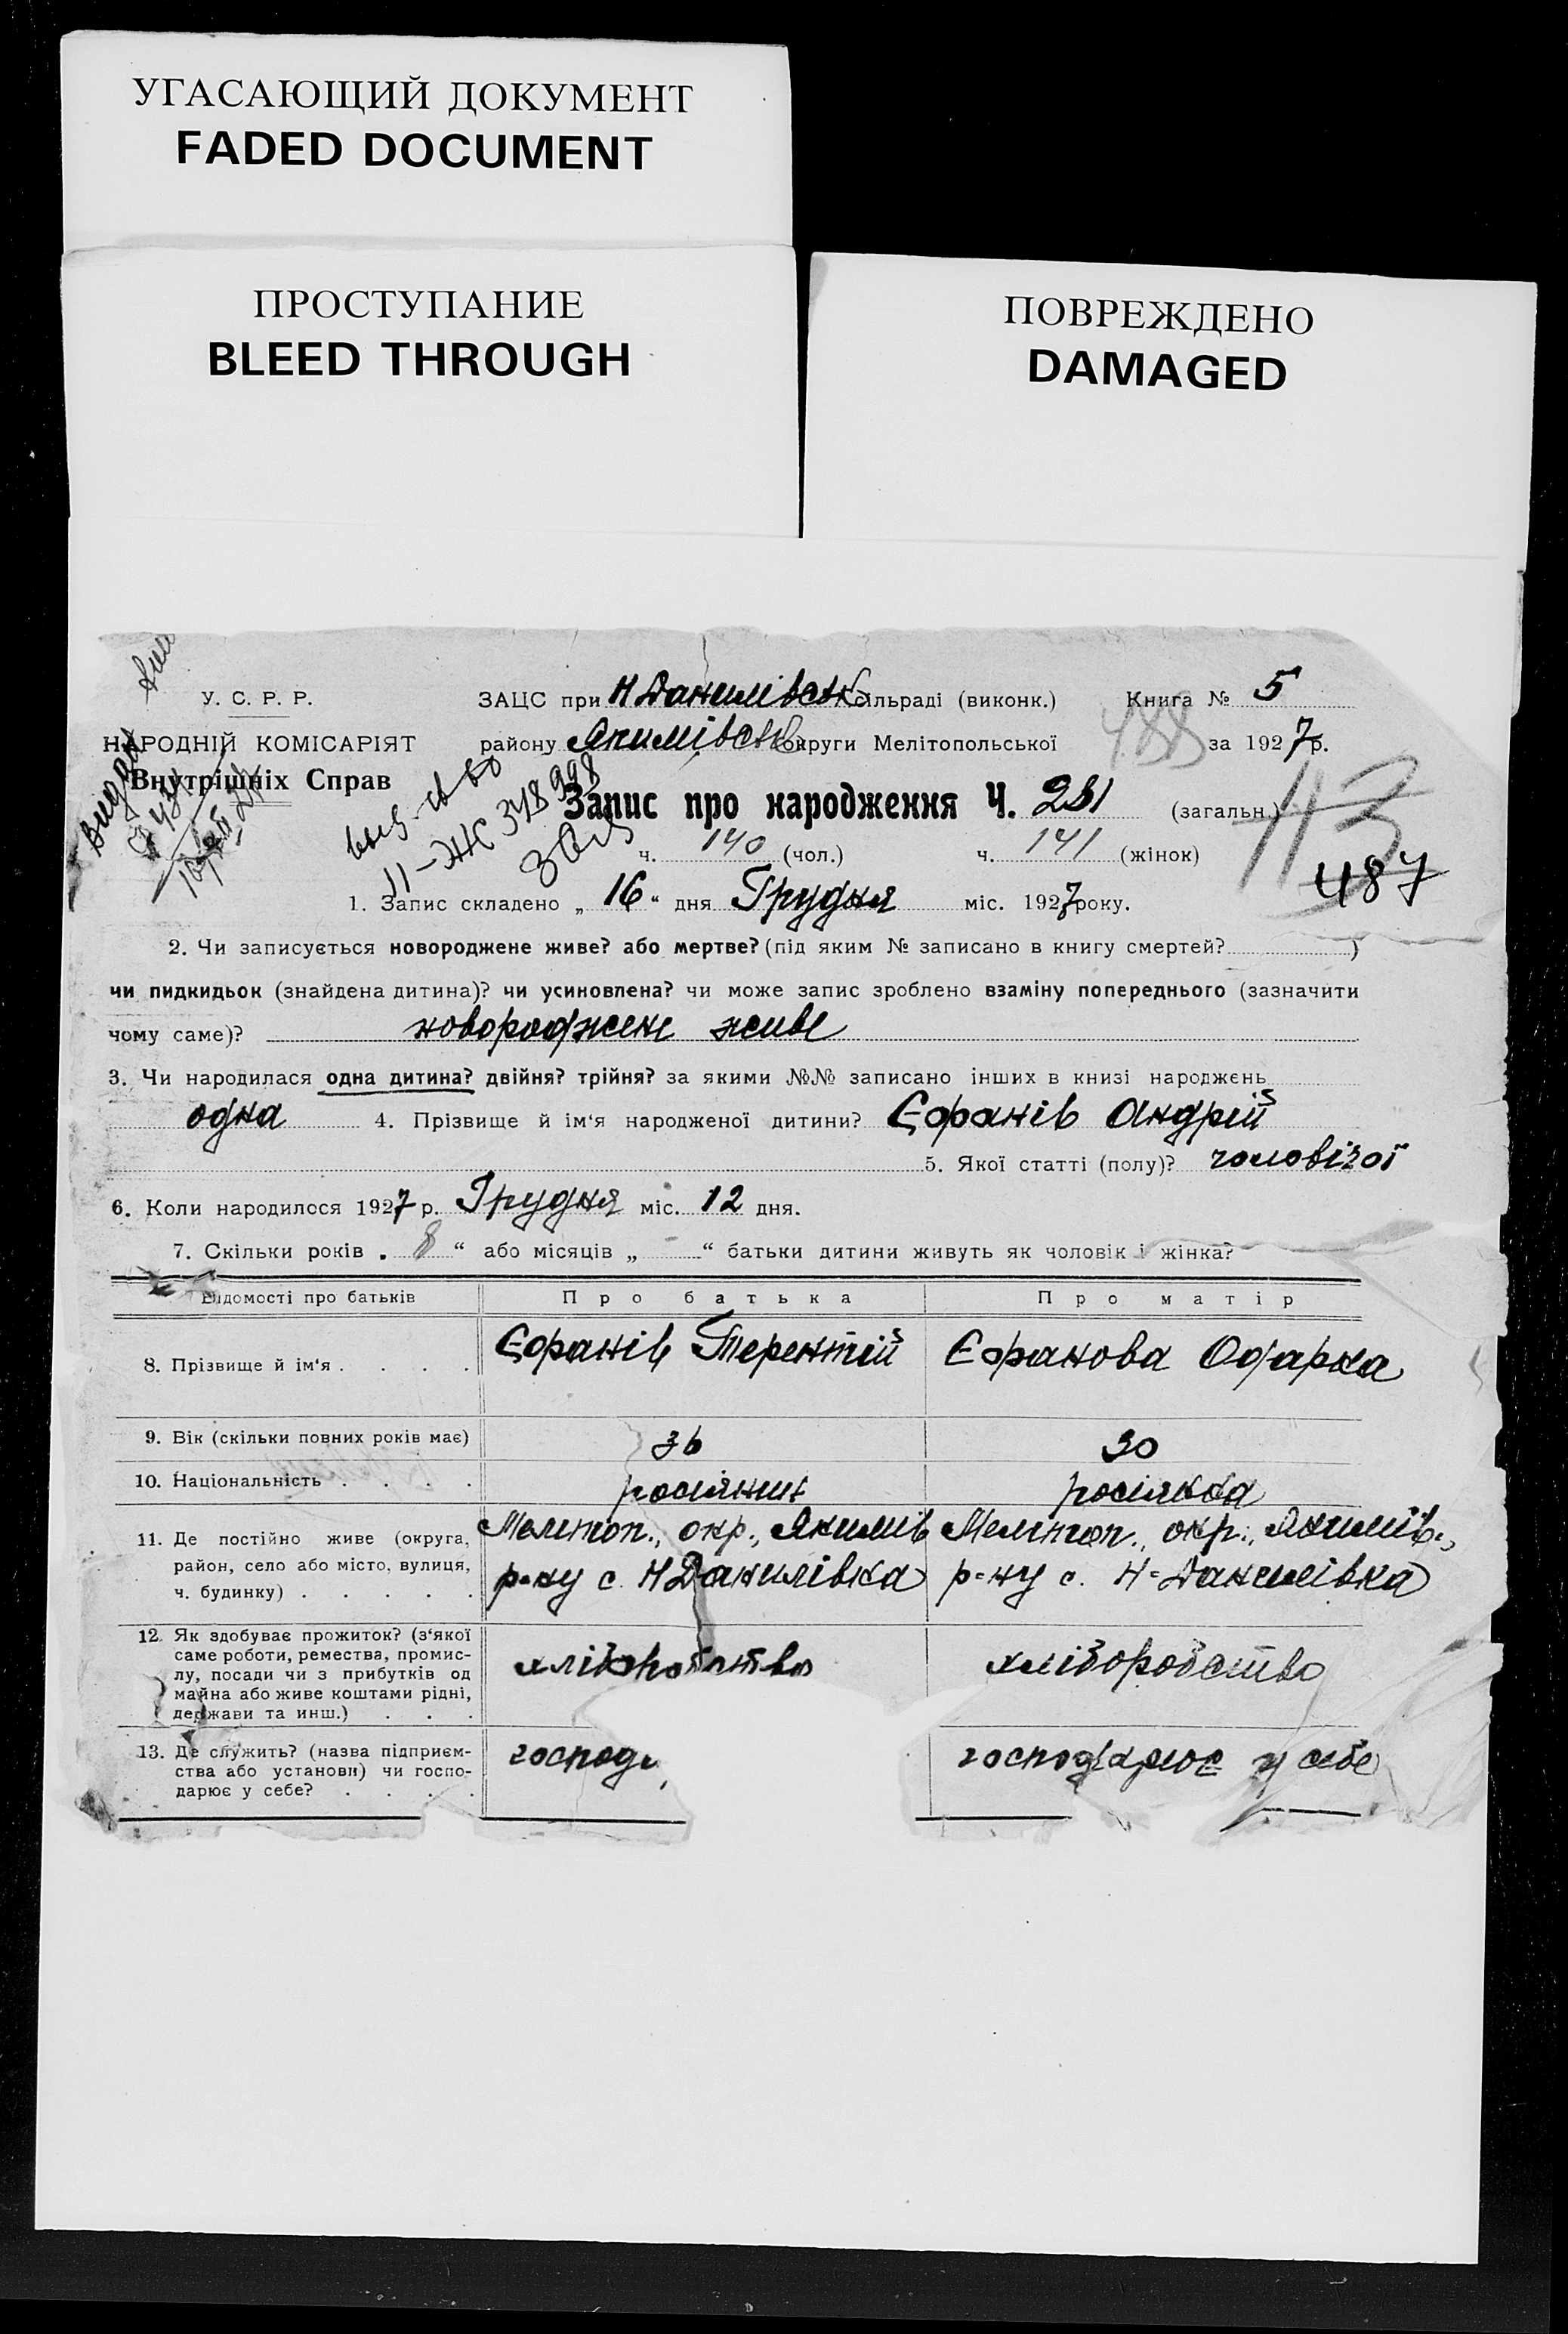 УГАСАЮЩИЙ ДОКУМЕНТ
FADED DOCUMENT
ПРОСТУПАНИЕ
BLEED THROUGH
ПОВРЕЖДЕНО
DAMAGED
У. С. Р. Р.
НАРОДНІЙ КОМІСАРІЯТ
Внутрішніх Справ
Видан
ЗАЦС при Н Данилівськ сільраді (виконк.) Книга № 5
району Якимівськ округи Мелітопольської 488 за 1927 р.
выд. св во
II-ЖС 318998
Запис про народження Ч. 281 (загальн.) 113
ч. 140 (чол.) ч. 141 (жінок)
487
1. Запис складено „ 16 “ дня Грудня міс. 1927 року.
2. Чи записується новороджене живе? або мертве? (під яким № записано в книгу смертей? )
чи пидкидьок (знайдена дитина)? чи усиновлена? чи може запис зроблено взаміну попереднього (зазначити
чому саме)? новороджене живе
3. Чи народилася одна дитина? двійня? трійня? за якими №№ записано інших в книзі народжень
одна 4. Прізвище й ім‘я народженої дитини? Єфанів Андрій
5. Якої статті (полу)? чоловічої
6. Коли народилося 1927 р. Грудня міс. 12 дня.
7. Скільки років „ 8 “ або місяців „ - “ батьки дитини живуть як чоловік і жінка?
Відомості про батьків Про батька Про матір
8. Прізвище й ім‘я . . . . Єфанів Терентій Єфанова Одарка
9. Вік (скільки повних років має) 36 30
10. Національність . . . . росіянин росіянка
11. Де постійно живе (округа, Мелітоп., окр., Якимів Мелітоп., окр., Якимів.,
район, село або місто, вулиця, р-ну с. Н Данилівка р-ну с. Н-Данилівка
ч. будинку) . . . . .
12. Як здобуває прожиток? (з‘якої
саме роботи, ремества, промис-
лу, посади чи з прибутків од хліборобство хліборобство
майна або живе коштами рідні,
держави та инш.) . . .
13. Де служить? (назва підприєм- господ господарює у себе
ства або установи) чи госпо-
дарює у себе? . . . .